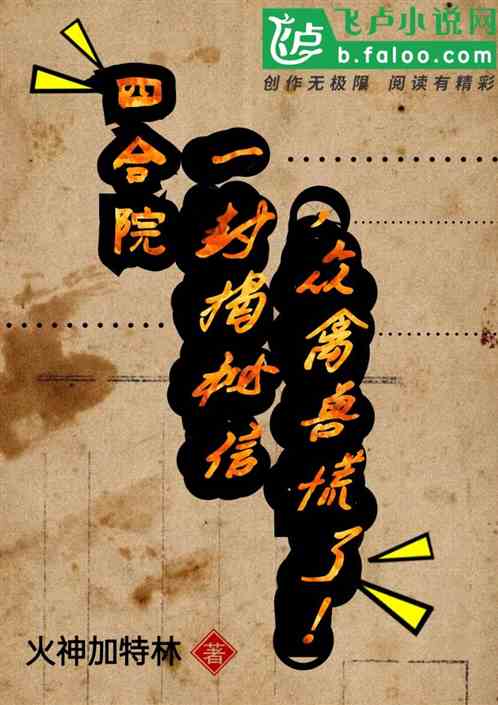 飞卢小说网
b.faloo.com
创作无极限 阅读有精彩
四合院
一封揭秘信
，众禽兽慌了！
火神加特林 著